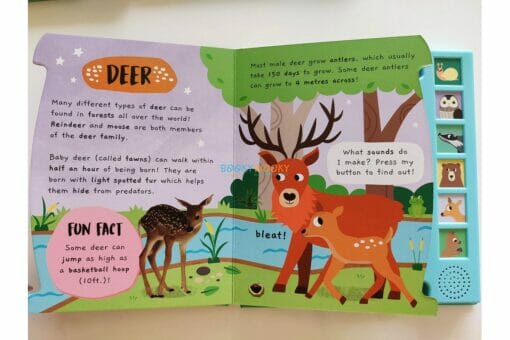 DEER
Many different types of deer can be
found in forests all over the world!
Reindeer and moose are both members
of the deer family.
Baby deer (called fawns) can walk within
half an hour of being born! They are
born with light spotted fur which helps
them hide from predators.
FUN FACT
Some deer can
jump as high as
a basketball hoop
(10ft.)!
Most male deer grow antlers, which usually
take 150 days to grow. Some deer antlers
can grow to 4 metres across!
What sounds do
I make? Press my
button to find out!
bleat!
BOOKY WOOKY